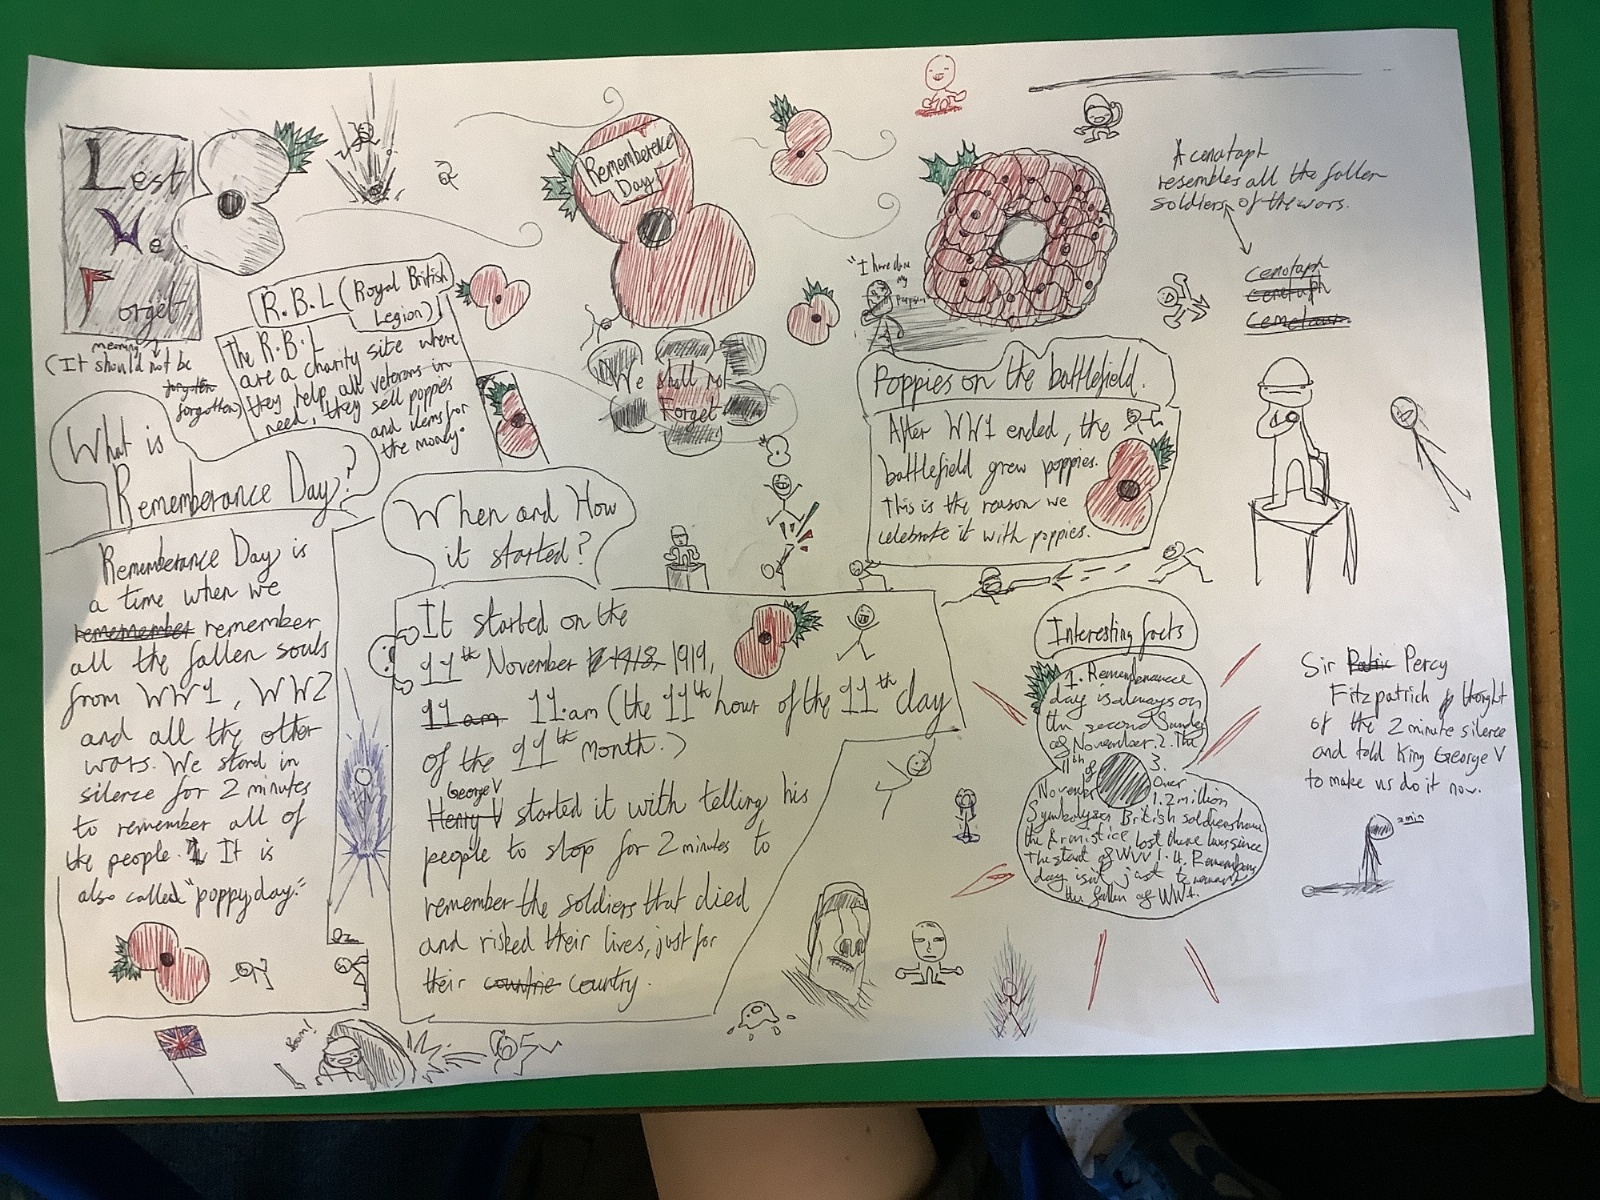 Lest
We
Forget
meaning
(It should not be
forgotten
forgotten)
R.B.L (Royal British
Legion)
The R.B.L
are a charity site where
they help all veterans in
need, they sell poppies
and items for
the money.
Rememberence
Day
We shall not
Forget
"I have done
my
A cenataph
resembles all the fallen
soldiers of the wars.
cenotaph
cenetaph
What is
Rememberance Day?
Rememberance Day is
a time when we
remember
all the fallen souls
from WW1, WW2
and all the other
wars. We stand in
silence for 2 minutes
to remember all of
the people. It is
also called "poppy day."
When and How
it started?
It started on the
11th November 1918 1919,
11am 11.am (the 11th hour of the 11th day
of the 11th month.)
George V
Henry V started it with telling his
people to stop for 2 minutes to
remember the soldiers that died
and risked their lives, just for
their countrie country.
Poppies on the battlefield.
After WW1 ended, the
battlefield grew poppies.
This is the reason we
celebrate it with poppies.
Interesting facts
1. Rememerance
day is always on
the second Sunday
of November. 2. The
11th of 3.
November Over
1.2 million
Symbolyses British soldiers have
the Armistice lost there lives since
the start of WW1. 4. Remembery
day isnt just to remember
the fallen of WW1.
Sir Patric Percy
Fitzpatrich thought
of the 2 minute silence
and told King George V
to make us do it now.
2 min
Boom!